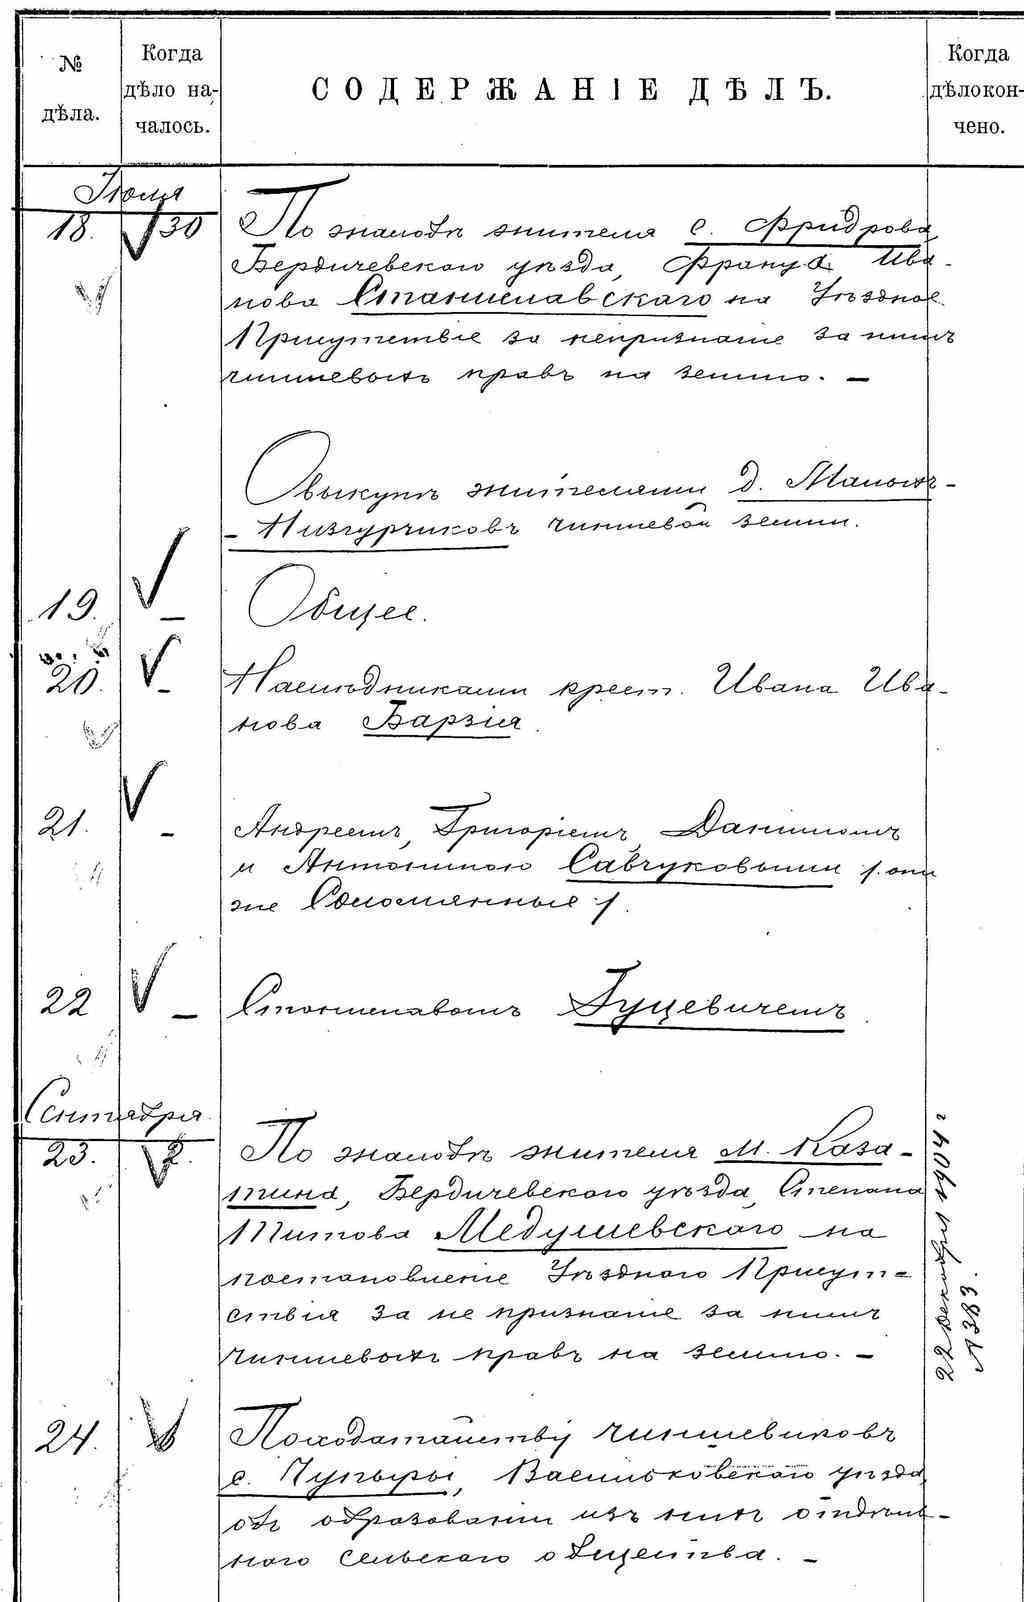 № дѣла.
Когда дѣло началось.
СОДЕРЖАНІЕ ДѢЛЪ.
Когда дѣло кончено.
Іюля
18. 30 По жалобѣ жителя с. Фридрова,
Бердичевскаго уѣзда, Франца Ива-
нова Станиславскаго на Уѣздное
Присутствіе за непризнаніе за нимъ
чиншевыхъ правъ на землю. —
О выкупѣ жителями д. Малыхъ-
- Низгурчиковъ чиншевой земли.
19. — Общее.
20. — Наслѣдниками крест. Ивана Ива-
нова Барзія.
21. — Андреемъ, Григоріемъ, Даніиломъ
и Антониною Савчуковыми /. они
же Соломянные /.
22 — Станиславомъ Гуцевичемъ.
Сентября
23. 2. По жалобѣ жителя м. Каза-
тина, Бердичевскаго уѣзда, Степана
Титова Медушевскаго на
постановленіе Уѣзднаго Присут-
ствія за не признаніе за нимъ
чиншевыхъ правъ на землю. —
22 Декабря 1904 г
№ 383.
24. По ходатайству чиншевиковъ
с. Чупыры, Васильковскаго уѣзда,
объ образованіи изъ нихъ отдѣль-
наго сельскаго общества. —